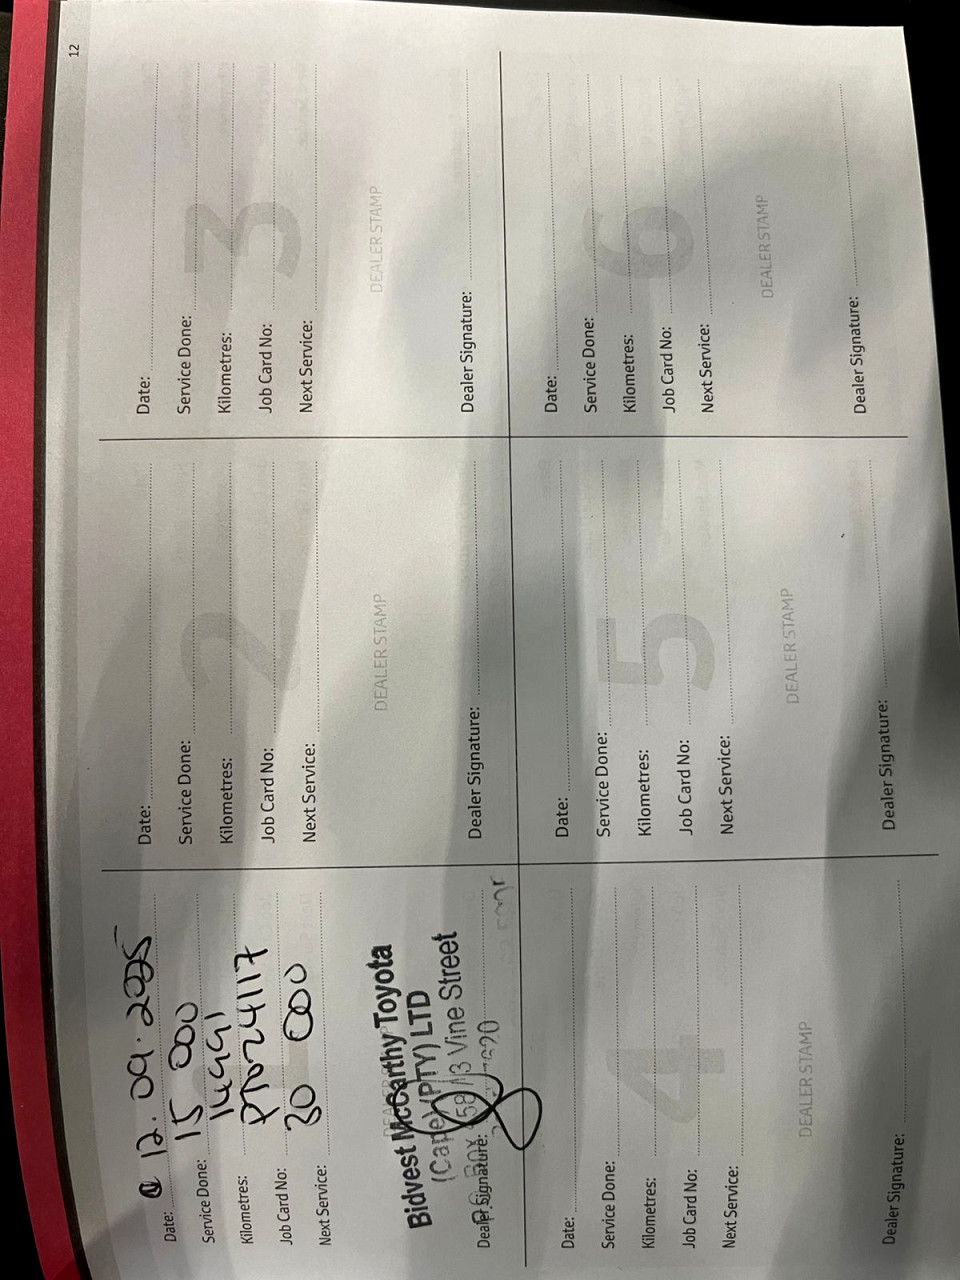 12
1
Date: 12.09.2025
Service Done: 15 000
Kilometres: 14991
Job Card No: PT024117
Next Service: 30 000
DEALER STAMP
Bidvest McCarthy Toyota
(Cape) (PTY) LTD
P.O. BOX 458/13 Vine Street
7620
Dealer Signature:
2
Date:
Service Done:
Kilometres:
Job Card No:
Next Service:
DEALER STAMP
Dealer Signature:
3
Date:
Service Done:
Kilometres:
Job Card No:
Next Service:
DEALER STAMP
Dealer Signature:
4
Date:
Service Done:
Kilometres:
Job Card No:
Next Service:
DEALER STAMP
Dealer Signature:
5
Date:
Service Done:
Kilometres:
Job Card No:
Next Service:
DEALER STAMP
Dealer Signature:
6
Date:
Service Done:
Kilometres:
Job Card No:
Next Service:
DEALER STAMP
Dealer Signature: